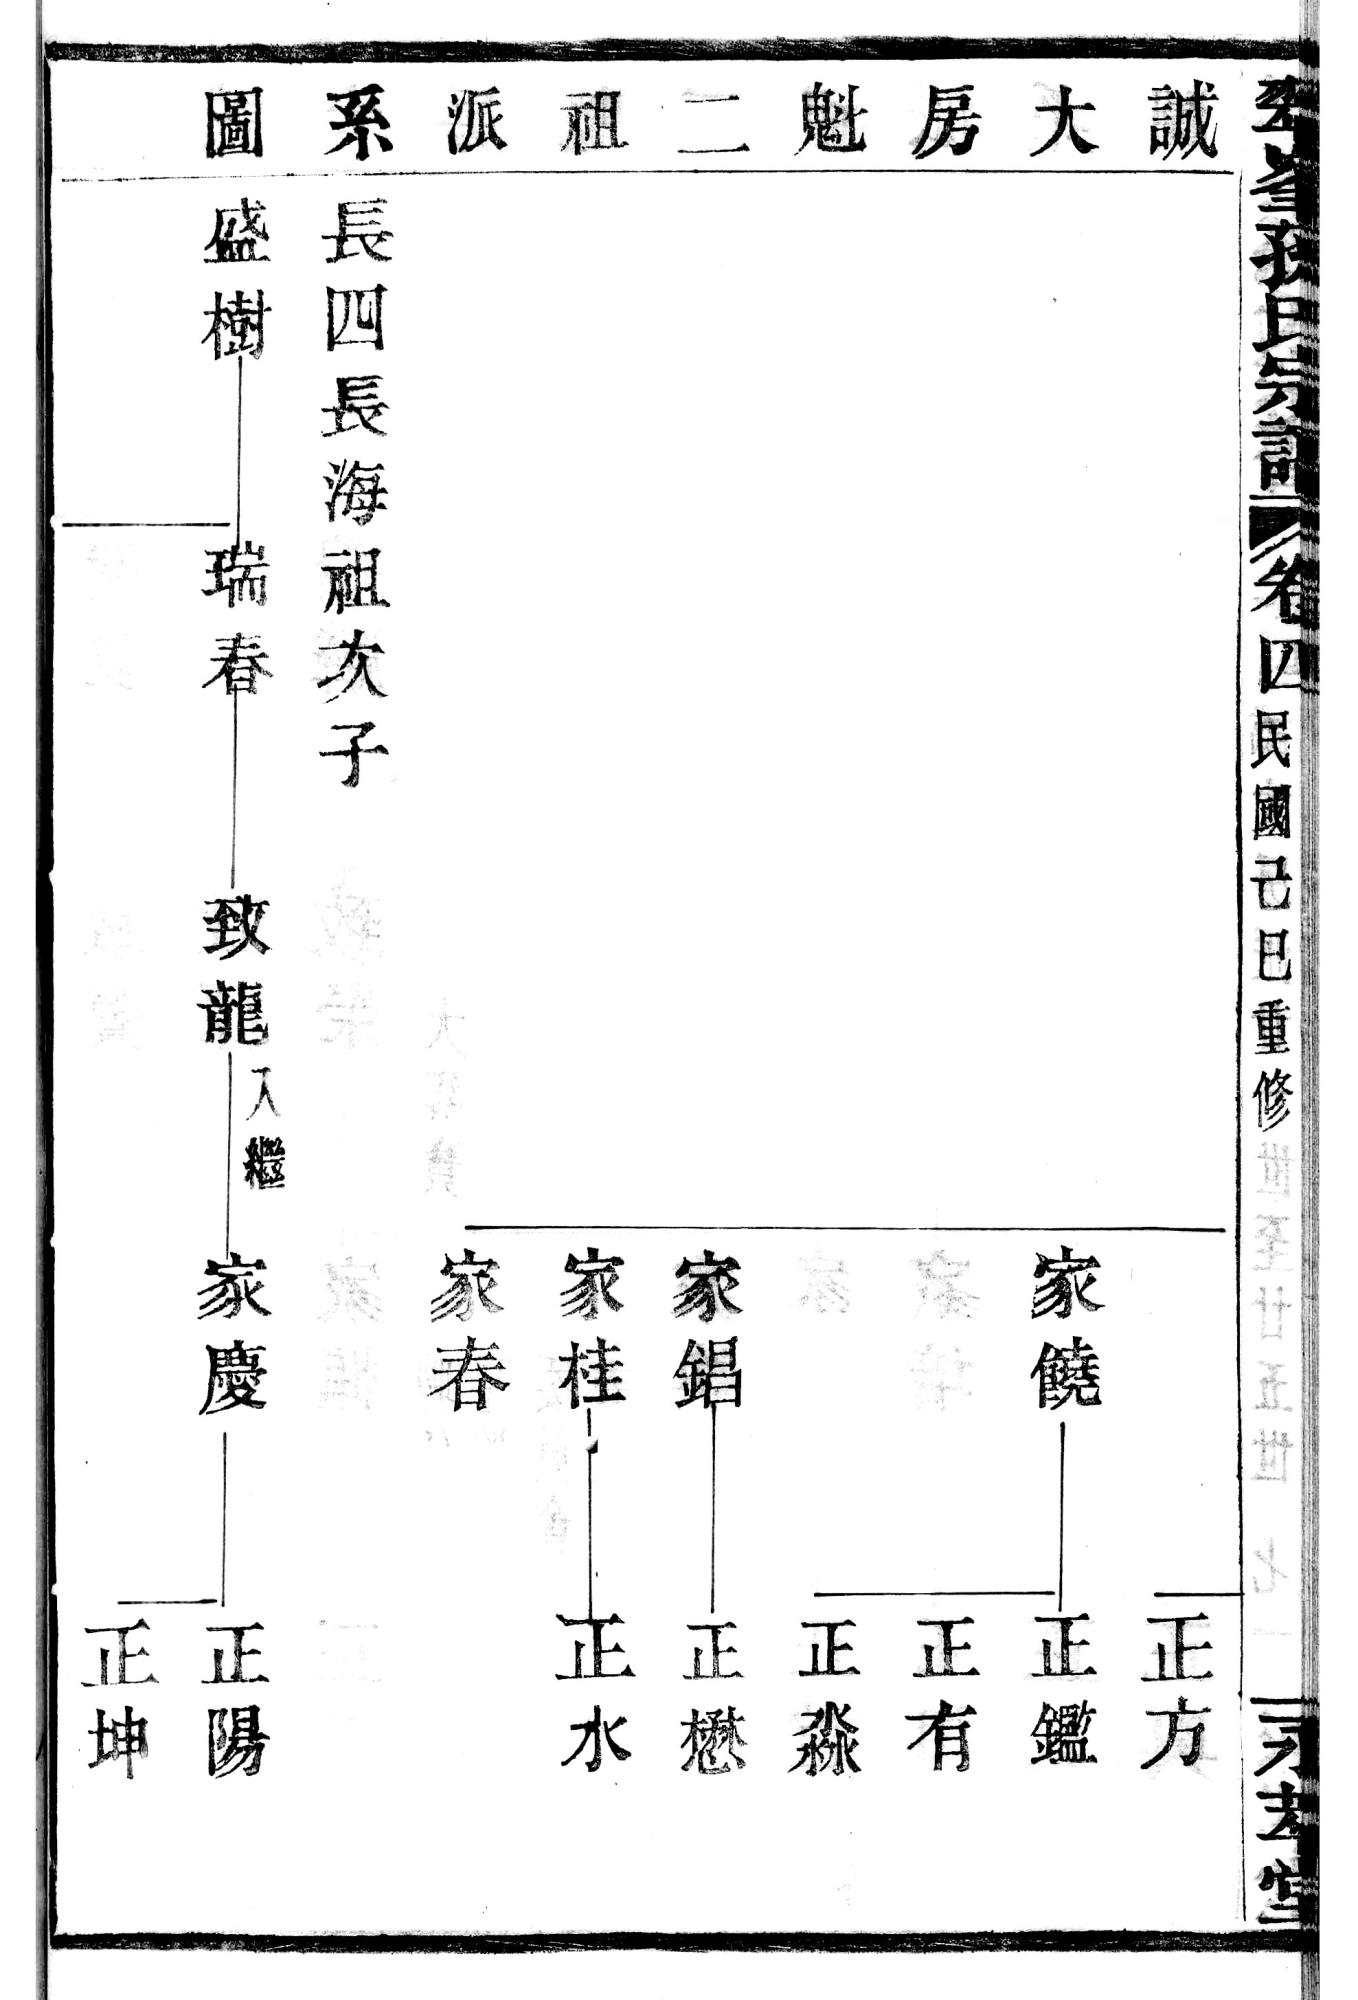 氏宗譜 卷四 民國己巳重修 七 永孝堂
誠大房魁二祖派系圖
正方
家饒 正鑑
正有
正淼
家錩 正懋
家桂 正水
家春
長四長海祖次子
盛樹 瑞春 致龍 入繼 家慶 正陽
正坤